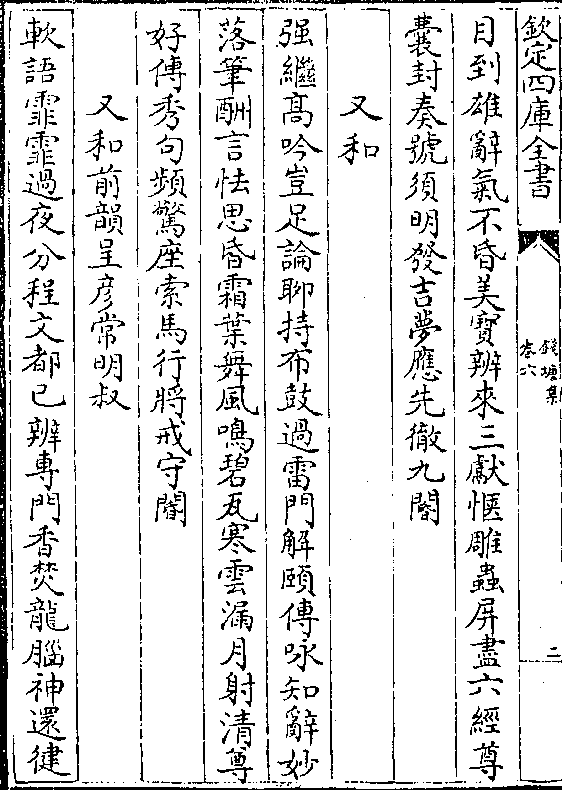 欽定四庫全書
錢塘集
卷六
二
目到雄辭氣不昏美寳辨來三獻愜雕蟲屏盡六經尊
囊封奏號須明發吉夢應先徹九閽
又和
强繼髙吟豈足論聊持布鼓過雷門解頤傳咏知辭妙
落筆酬言怯思昏霜葉舞風鳴碧瓦寒雲漏月射清尊
好傳秀句頻驚座索馬行將戒守閽
又和前韻呈彦常明叔
軟語霏霏過夜分程文都已辨專門香焚龍腦神還健